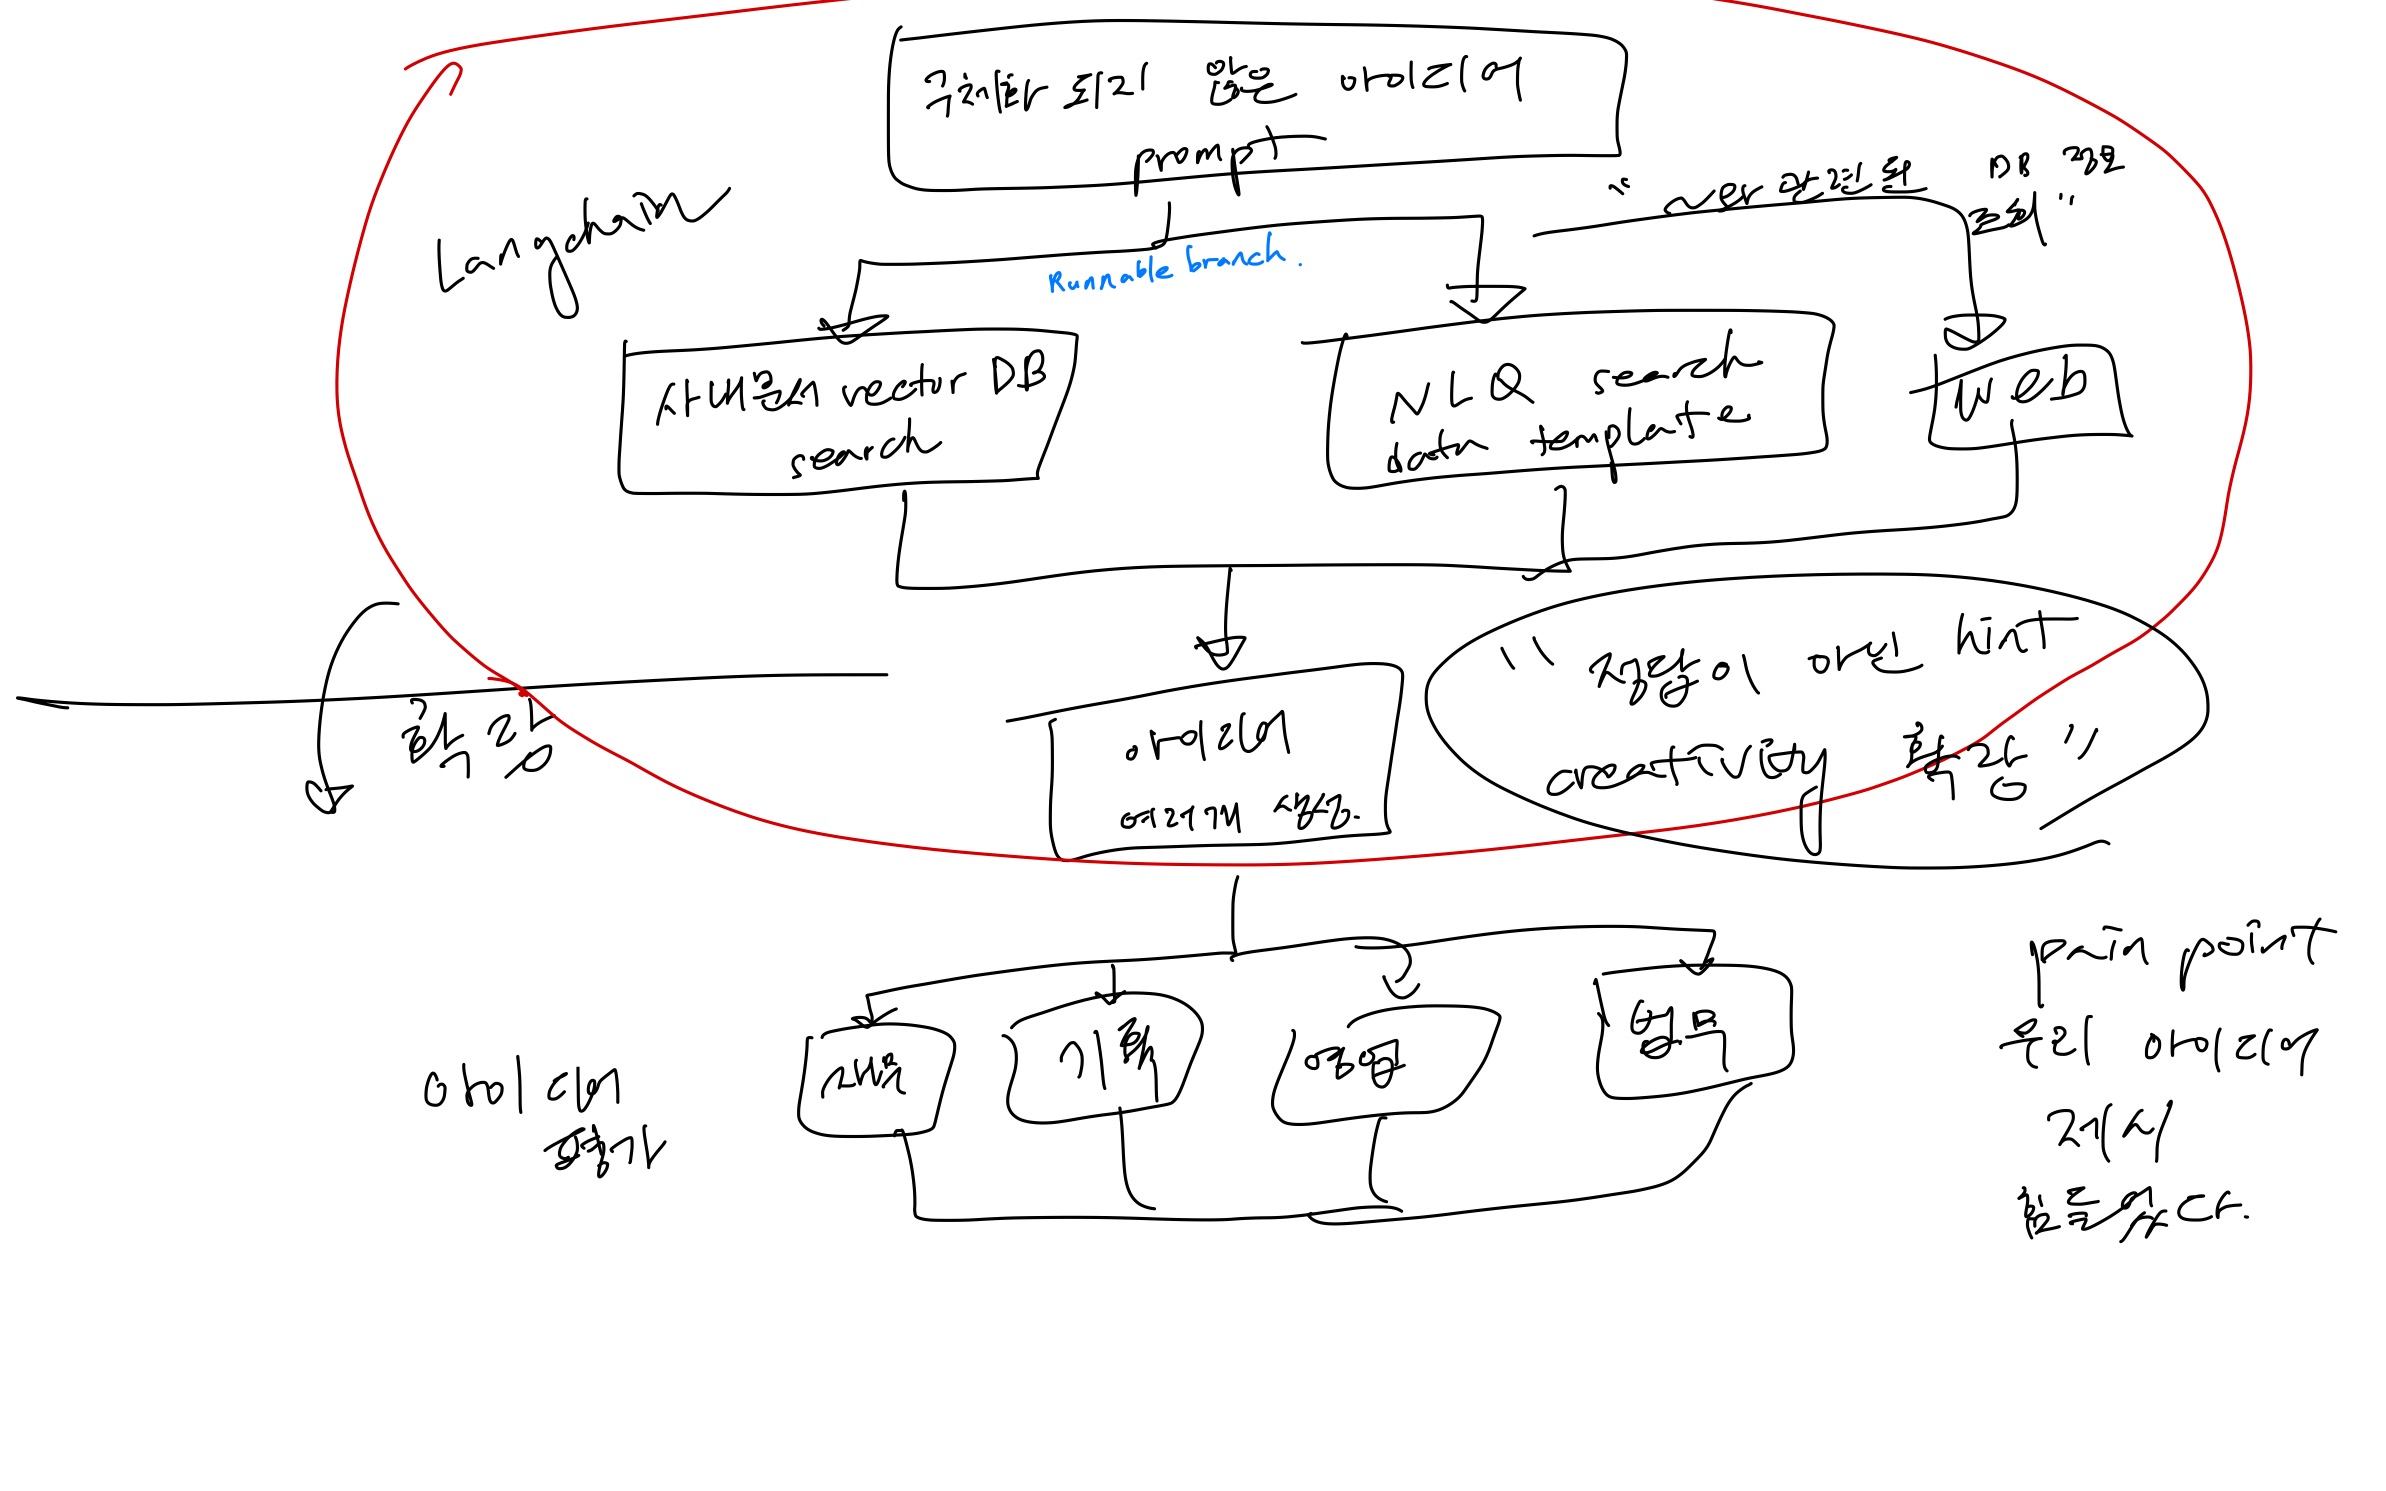 구체화 되지 않은 아이디어
prompt
Langchain
Runnable branch.
사내문서 vector DB
search
NLQ search
data template
Web
확장
아이디어
" 정답이 아닌 hint
creativity 확장 "
기획
영업
법무
아이디어
평가
pain point
우리 아이디어
제시
힘들었다.